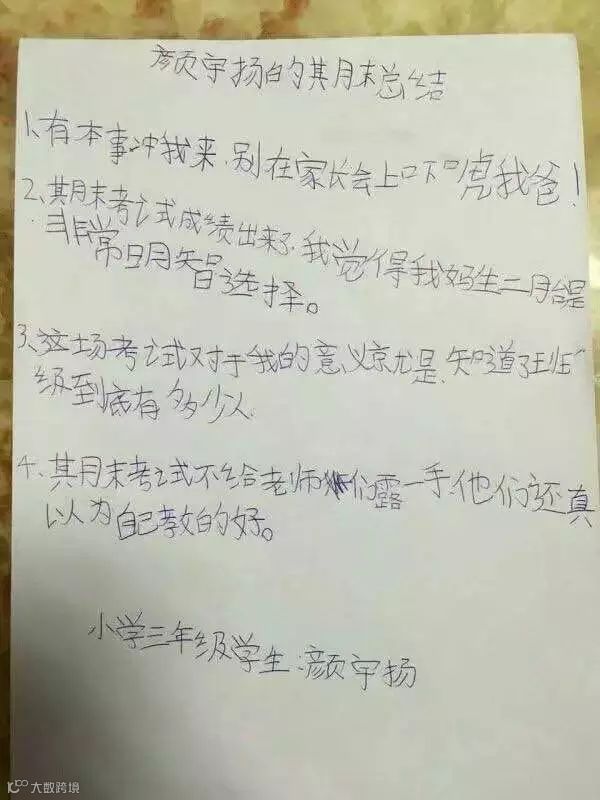 颜宇扬的期末总结
1、有本事冲我来,别在家长会上吓唬我爸!
2、期末考试成绩出来了,我觉得我妈生二胎是
非常明智选择。
3、这场考试对于我的意义就是,知道了班
级到底有多少人.
4、期末考试不给老师们露一手,他们还真
以为自己教的好。
小学三年级学生:颜宇扬
大数跨境